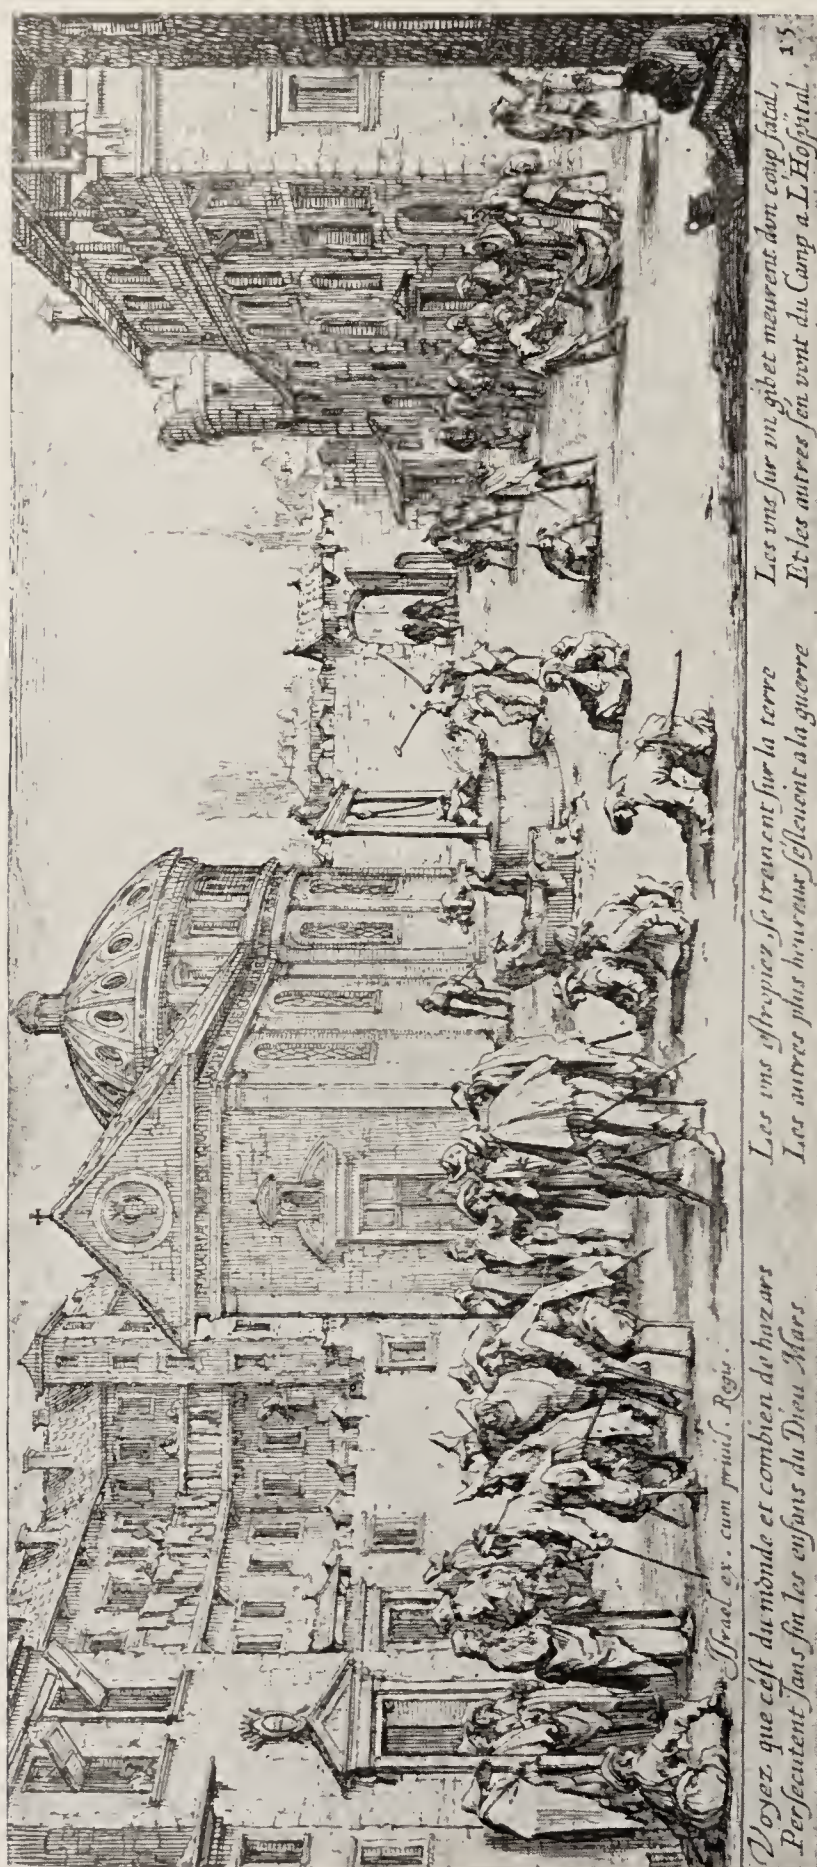 Iſrael ex. cum priuil. Regis.
Voyez que céſt du monde et combien de hazars
Perſecutent ſans fin les enfans du Dieu Mars
Les vns eſtropiez ſe treinent ſur la terre
Les autres plus heureux ſéſleuent a la guerre
Les vns ſur vn gibet meurent dun coup fatal,
Et les autres ſen vont du Camp a L'Hoſpital
15